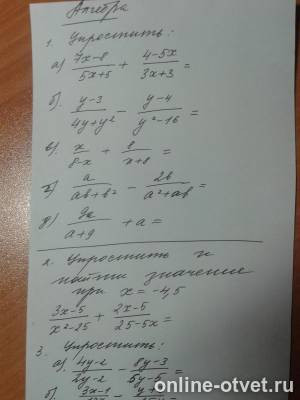 Алгебра
1. Упростить:
а) 7x-8/5x+5 + 4-5x/3x+3 =
б). y-3/4y+y² - y-4/y²-16 =
в). x/8-x + 8/x+8 =
г). a/ab+b² - 2b/a²+ab =
д). 9a/a+9 + a =
2. Упростить и
найти значение
при x = -4,5
3x-5/x²-25 + 2x-5/25-5x =
3. Упростить:
а). 4y-2/2y-2 - 8y-3/5y-5 =
б). 3x-1
online-otvet.ru